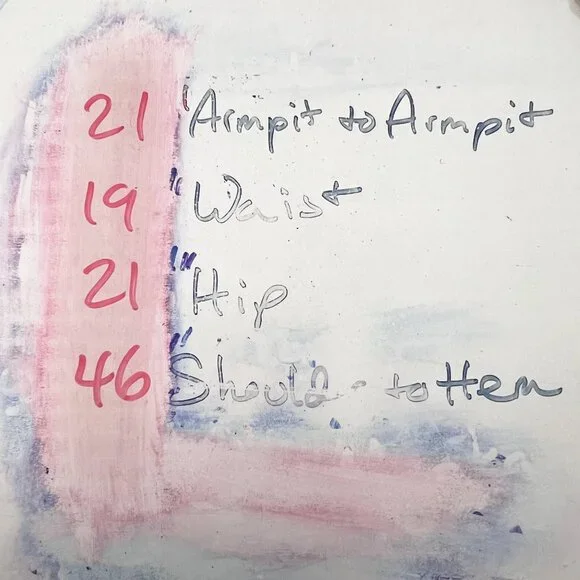 21 " Armpit to Armpit
19 " Waist
21 " Hip
46 " to Hem